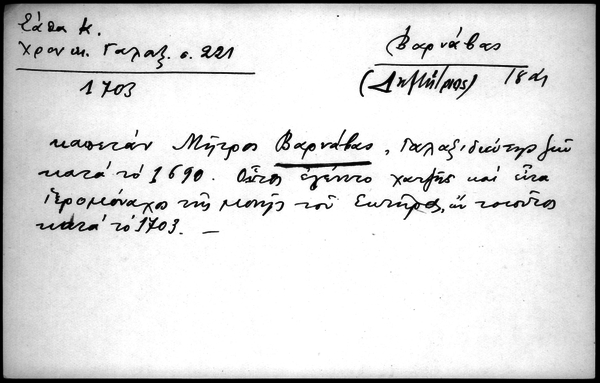 Σάθα Κ.
Χρονικ. Γαλαξ. σ. 221
1703
Βαρνάβας
(Δημήτριος) 18 αι
καπετάν Μῆτρος Βαρνάβας, Γαλαξιδιώτης ζῶν
κατά τό 1690. Οὗτος ἐγένετο χατζῆς καί εἶτα
ἱερομόναχος τῆς μονῆς τοῦ Σωτῆρος, ὤν τοιοῦτος
κατά τό 1703. —